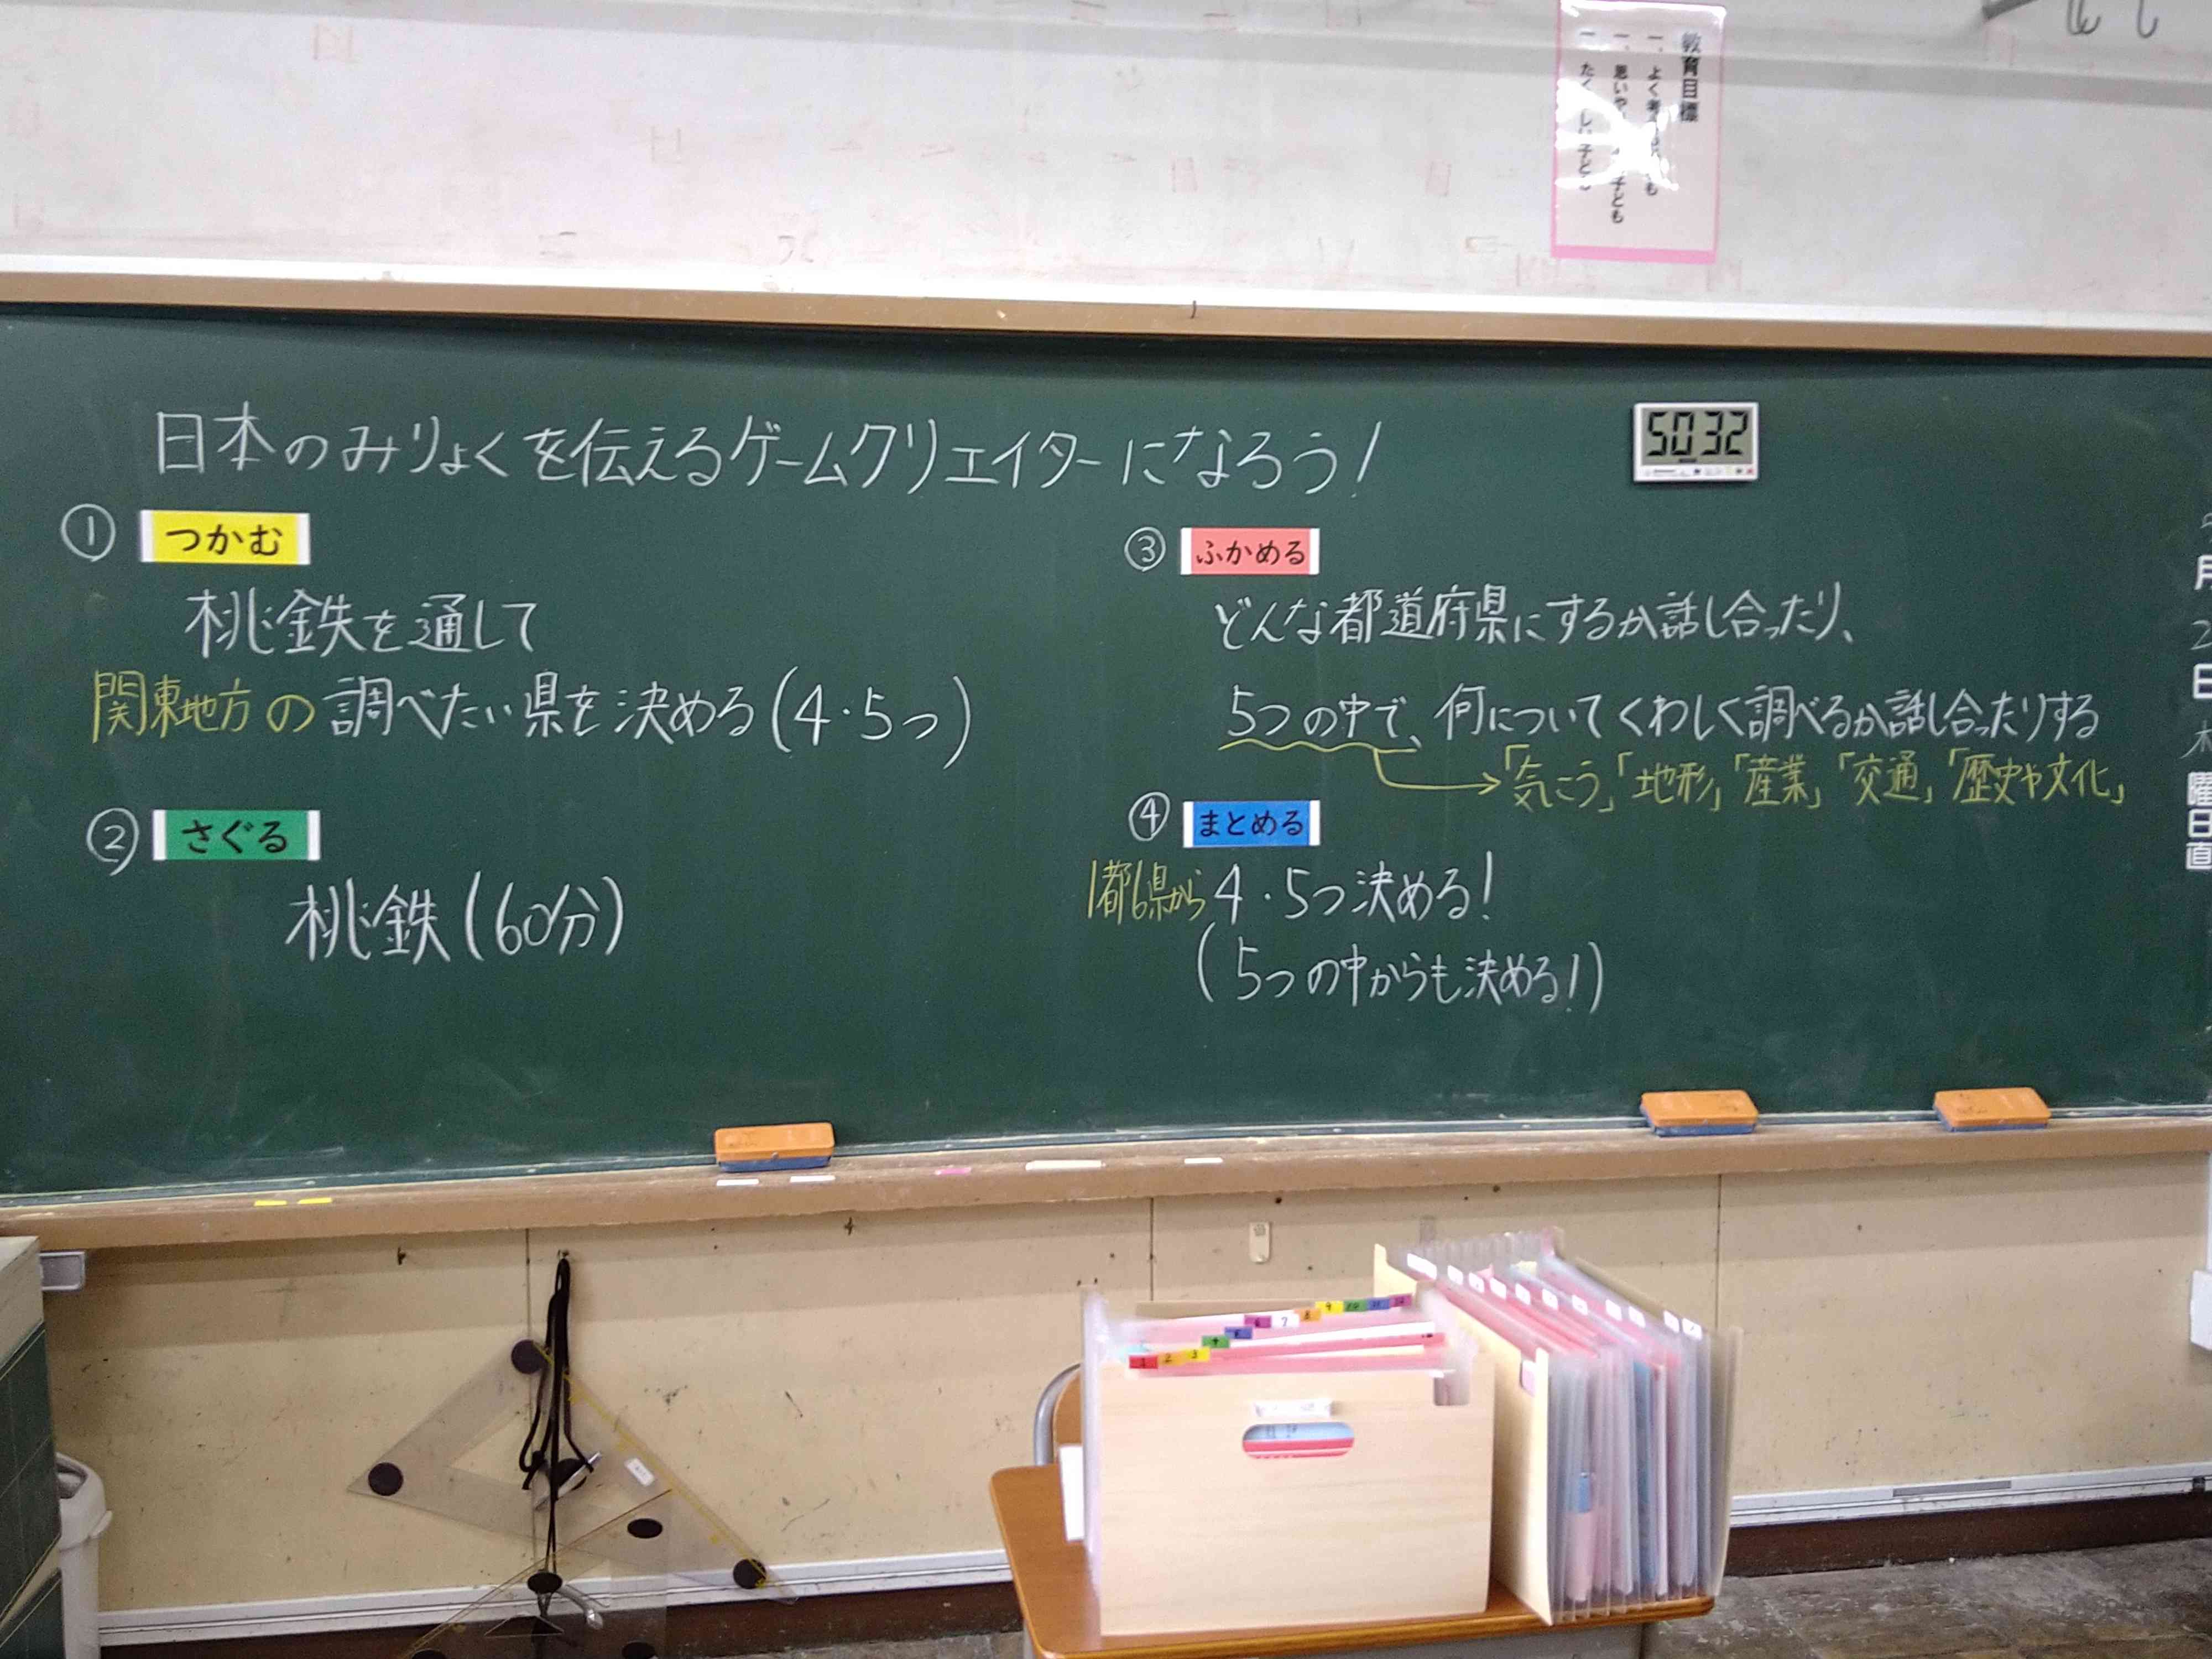 教育目標
日本のみりょくを伝えるゲームクリエイターになろう!
50 32
① つかむ
桃鉄を通して
関東地方の調べたい県を決める(4・5つ)
② さぐる
桃鉄(60分)
③ ふかめる
どんな都道府県にするか話し合ったり、
5つの中で、何についてくわしく調べるか話し合ったりする
「気こう」「地形」「産業」「交通」「歴史や文化」
④ まとめる
1都6県から4・5つ決める!
(5つの中からも決める!)
月
2
日
木
曜日
直